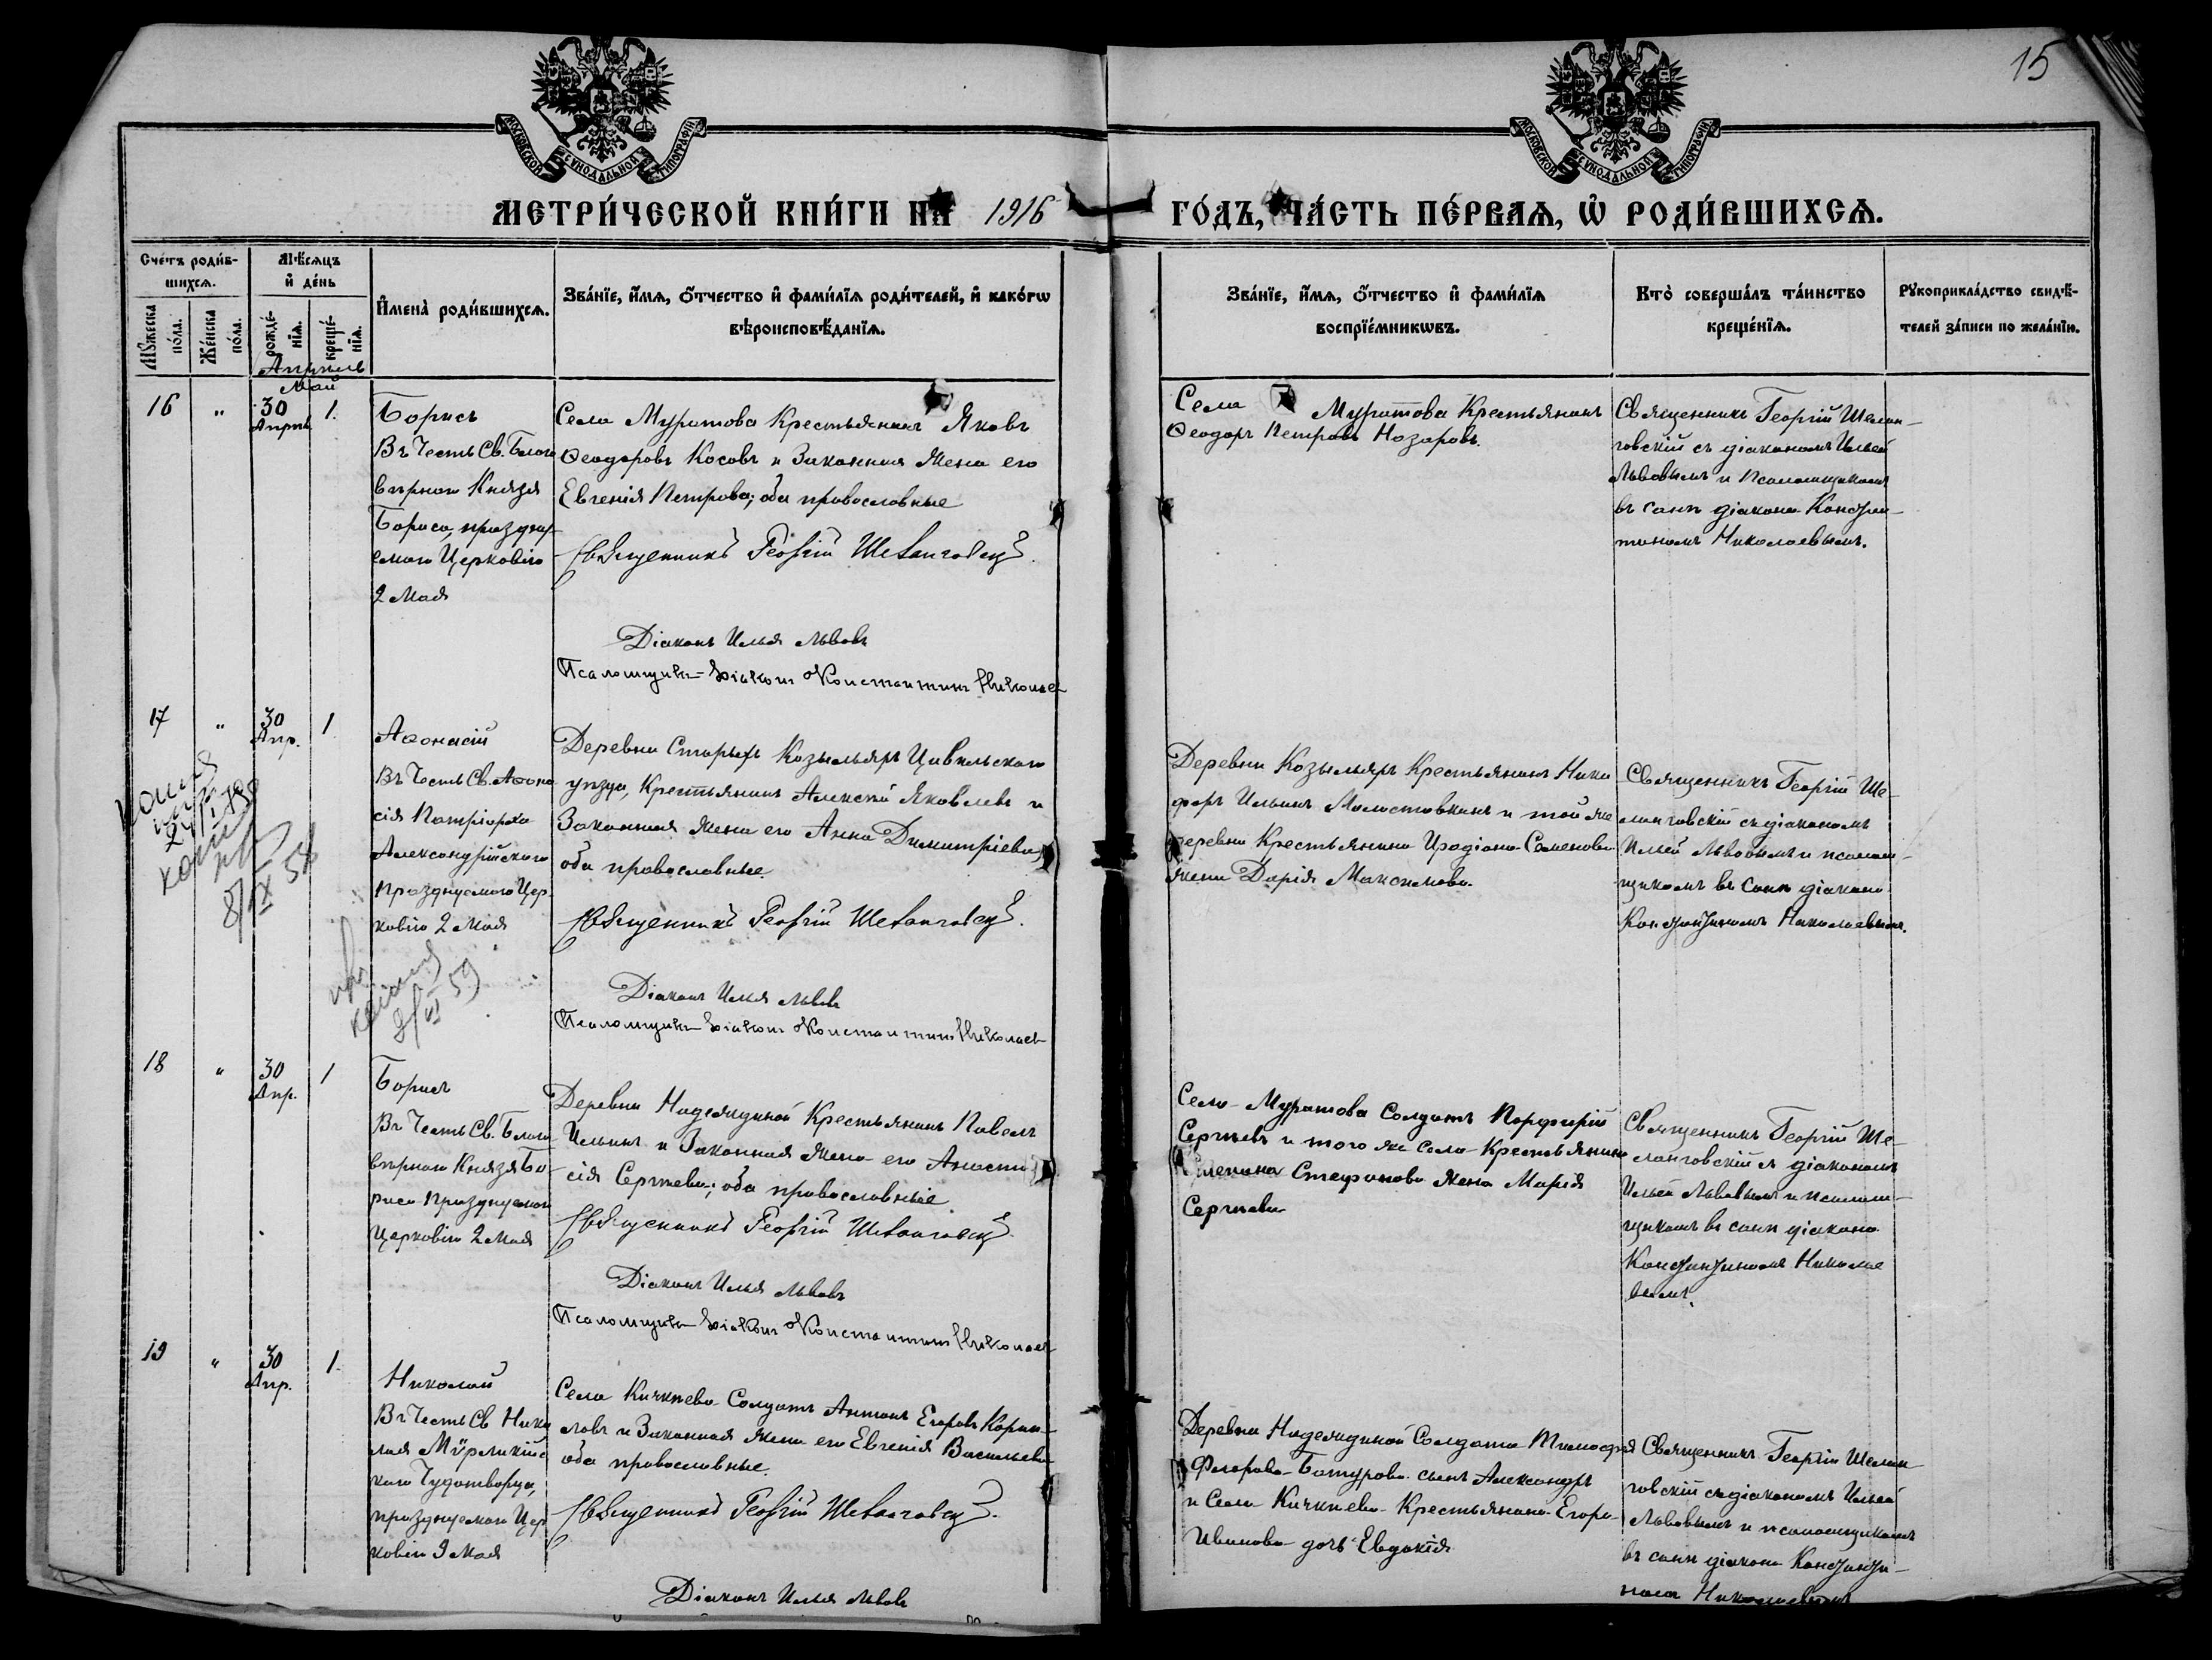 15
МОСКОВСКОЙ СѴНОДАЛЬНОЙ ТИПОГРАФІИ
МОСКОВСКОЙ СѴНОДАЛЬНОЙ ТИПОГРАФІИ
МЕТРИ́ЧЕСКОЙ КНИ́ГИ НА 1916 ГО́ДЪ, ЧА́СТЬ ПЕ́РВАѦ, Ѽ РОДИ́ВШИХСѦ.
Сче́тъ роди́в-
шихсѧ.
Мꙋ́жеска по́ла.
Же́нска по́ла.
Мѣ́сѧцъ
и҆ де́нь
рожде́-
нїѧ.
креще́-
нїѧ.
И҆мена̀ роди́вшихсѧ.
Зва́нїе, и҆́мѧ, ѻ҆́тчество и҆ фами́лїѧ роди́телей, и҆ како́гѡ
вѣроисповѣ́данїѧ.
Зва́нїе, и҆́мѧ, ѻ҆́тчество и҆ фами́лїѧ
воспрїе́мникѡвъ.
Кто̀ соверша́лъ та́инство
креще́нїѧ.
Рꙋкоприкла́дство свидѣ́-
телей за́писи по жела́нїю.
Апрель
Май
16 " 30 1.
Апрль
Борисъ
Въ Честь Св. Благо
вѣрнаго Князя
Бориса, праздну-
емаго Церковію
2 Мая
Села Муратова Крестьянинъ Яковъ
Ѳеодоровъ Косовъ и Законная жена его
Евгенія Петрова; оба православные
Священникъ Георгій Шелонговскій.
Діаконъ Илья Львовъ
Псаломщикъ-Діаконъ Константинъ Николаев
Села Муратова Крестьянинъ
Ѳеодоръ Петровъ Назаровъ.
Священникъ Георгій Шелон-
говскій съ діакономъ Ильей
Львовымъ и Псаломщикомъ
въ санѣ діакона Констан-
тиномъ Николаевымъ.
17 " 30 1
Апр.
Аѳонасій
Въ Честь Св. Аѳона
сія Патріарха
Александрійскаго
празднуемаго Цер-
ковію 2 Мая
Деревни Старыхъ Козыльяръ Цивильскаго
уѣзда, Крестьянинъ Алексѣй Яковлевъ и
Законная жена его Анна Димитріева,
оба православные.
Священникъ Георгій Шелонговскій.
Діаконъ Илья Львовъ
Псаломщикъ-Діаконъ Константинъ Николаев
Деревни Козыльяръ Крестьянинъ Ники
форъ Ильинъ Молостовкинъ и той же
деревни Крестьянина Иродіона Семенова
жена Дарія Максимова.
Священникъ Георгій Ше-
лонговскій съ діакономъ
Ильей Львовымъ и псалом-
щикомъ въ санѣ діакона
Константиномъ Николаевымъ.
копія
копія
8/IX 58
копія
8/VI 59
18 " 30 1
Апр.
Борисъ
Въ Честь Св. Благо
вѣрнаго Князя Бо-
риса празднуемаго
Церковію 2 Мая
Деревни Надеждиной Крестьянинъ Павелъ
Ильинъ и Законная жена его Анаста
сія Сергѣева; оба православные
Священникъ Георгій Шелонговскій
Діаконъ Илья Львовъ
Псаломщикъ-Діаконъ Константинъ Николаев
Села Муратова Солдатъ Порфирій
Сергѣевъ и того же села Крестьянина
Степана Стефанова жена Марія
Сергѣева
Священникъ Георгій Ше-
лонговскій съ діакономъ
Ильей Львовымъ и псалом-
щикомъ въ санѣ діакона
Константиномъ Николае
вымъ.
19 " 30 1.
Апр.
Николай
Въ Честь Св Нико
лая Мѵрликійс
каго Чудотворца,
празднуемаго Цер
ковію 9 Мая
Села Кичкѣева Солдатъ Антонъ Егоровъ Корни-
ловъ и Законная жена его Евгенія Васильева
оба православные.
Священникъ Георгій Шелонговскій.
Діаконъ Илья Львовъ
Деревни Надеждиной Солдата Тимофея
Федорова Батурова сынъ Александръ
и Села Кичкѣева Крестьянина Егора
Иванова дочь Евдокія
Священникъ Георгій Шелон-
говскій съ діакономъ Ильей
Львовымъ и псаломщикомъ
въ санѣ діакона Константи-
номъ Николаевымъ